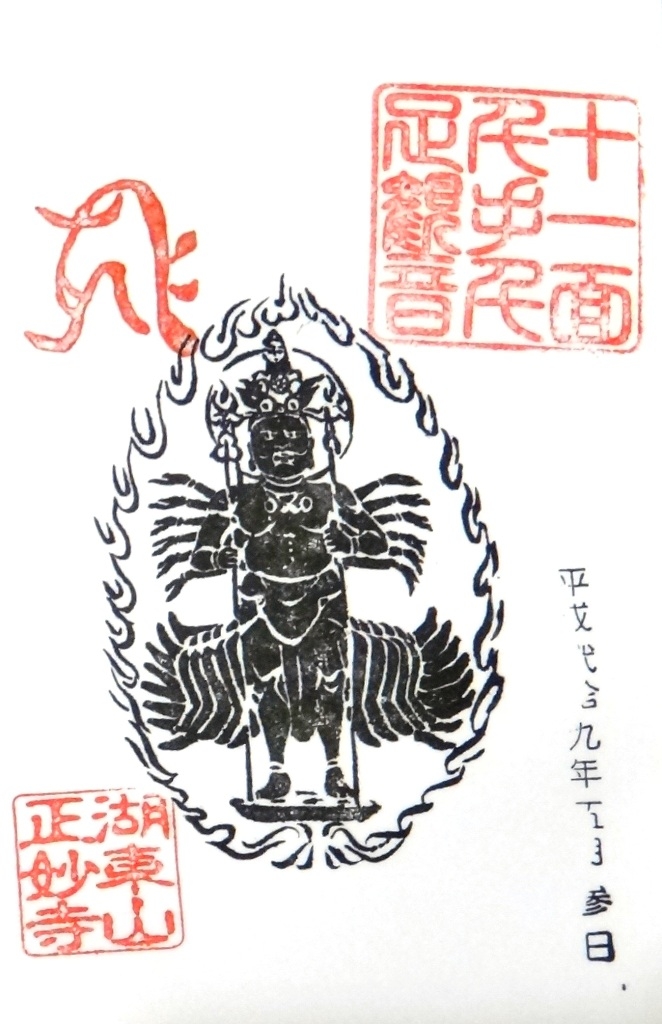 十一面
千手千
足觀音
平成
九年五月参日
湖車山
正妙寺